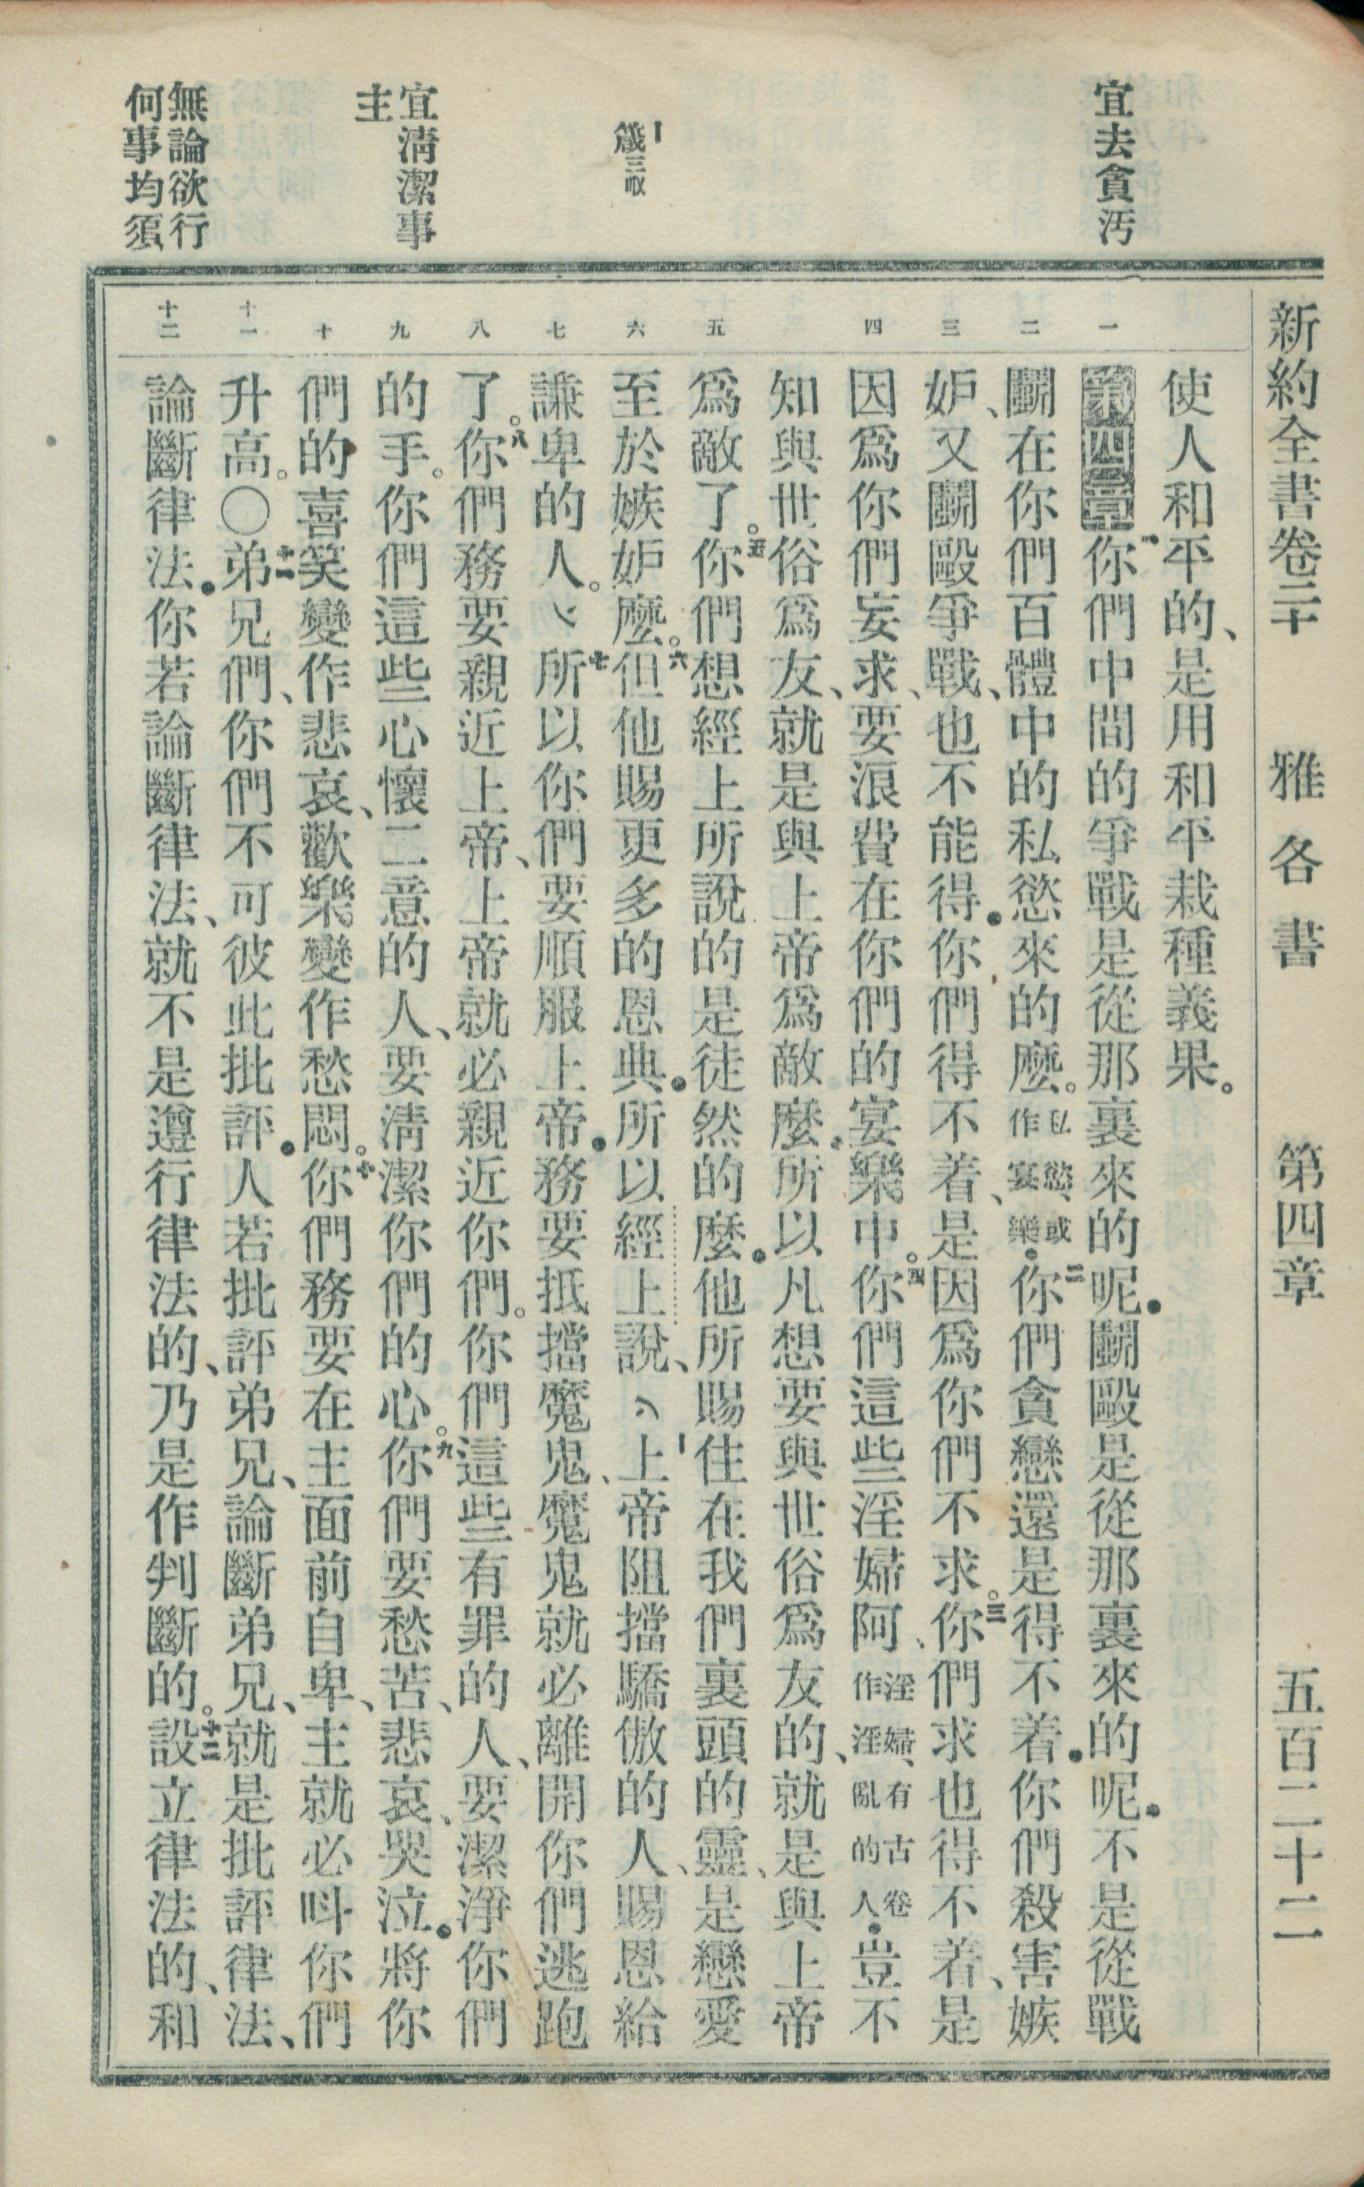 新約全書卷二十　雅各書　第四章　五百二十二
宜去貪污
箴三
宜清潔事
主
無論欲行
何事均須
一　二　三　四　五　六　七　八　九　十　十一　十二
使人和平的、是用和平栽種義果。
第四章一你們中間的爭戰是從那裏來的呢．鬭毆是從那裏來的呢．不是從戰
鬭在你們百體中的私慾來的麼。私慾、或作宴樂．二你們貪戀還是得不着．你們殺害嫉
妒、又鬭毆爭戰、也不能得．你們得不着、是因爲你們不求。三你們求也得不着、是
因爲你們妄求、要浪費在你們的宴樂中。四你們這些淫婦阿、淫婦、有古卷作淫亂的人．豈不
知與世俗爲友、就是與上帝爲敵麼．所以凡想要與世俗爲友的、就是與上帝
爲敵了。五你們想經上所說的是徒然的麼．他所賜住在我們裏頭的靈、是戀愛
至於嫉妒麼。六但他賜更多的恩典．所以經上說、〽上帝阻擋驕傲的人、賜恩給
謙卑的人。〽七所以你們要順服上帝．務要抵擋魔鬼、魔鬼就必離開你們逃跑
了。八你們務要親近上帝、上帝就必親近你們。你們這些有罪的人、要潔淨你們
的手。你們這些心懷二意的人、要清潔你們的心。九你們要愁苦、悲哀、哭泣．將你
們的喜笑變作悲哀、歡樂變作愁悶。十你們務要在主面前自卑、主就必呌你們
升高。〇十一弟兄們、你們不可彼此批評．人若批評弟兄、論斷弟兄、就是批評律法、
論斷律法．你若論斷律法、就不是遵行律法的、乃是作判斷的。十二設立律法的、和